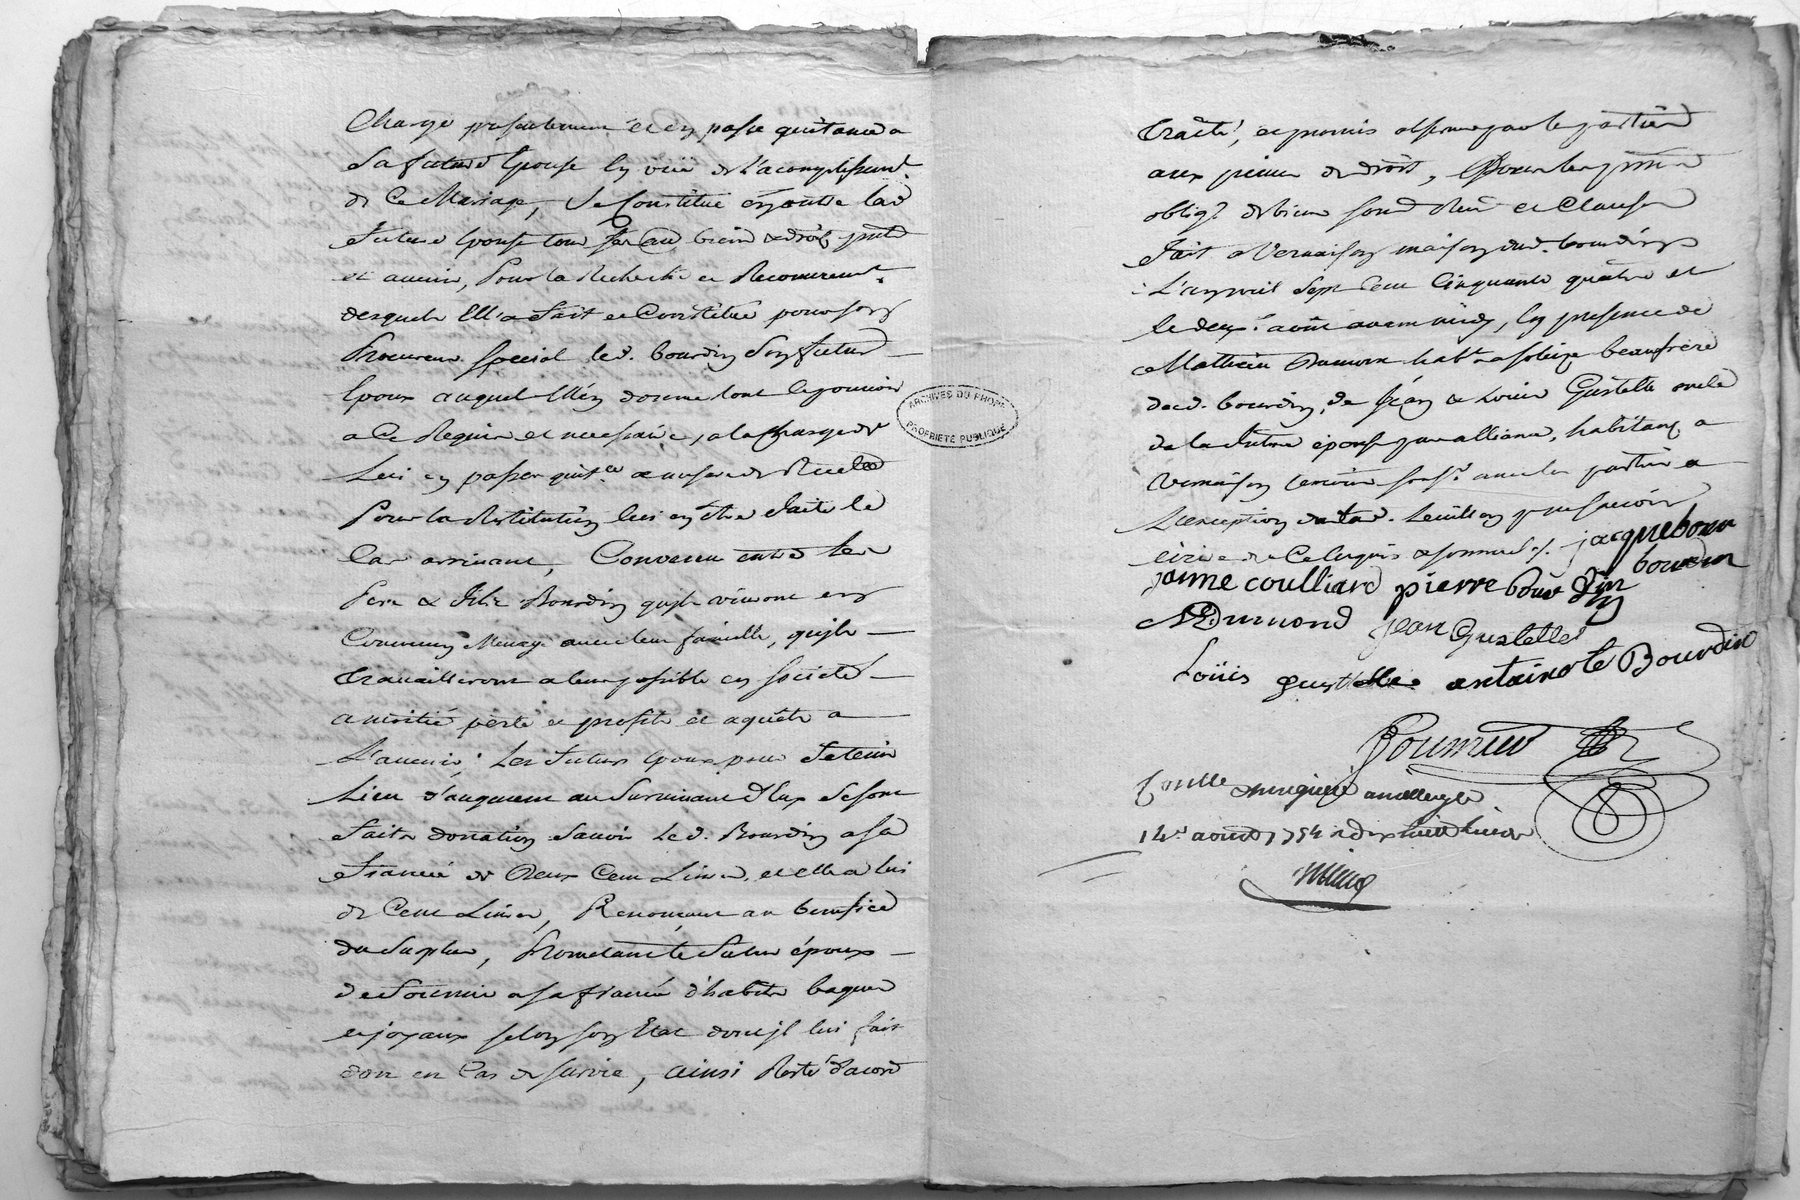 Chargé presentement et en passe quittance a
Sa future Epouse En vüe de L'acomplissemt.
de Ce Mariage, Se Constitüe en outre lad
future Epouse tous Ses biens & droits pnts
et avenir, Pour la Recherche et Recouvrement
desquels Elle a fait et Constitüe pour son
Procureur Special led. bourdin Son futur
Epoux auquel Elle en donne tout le pouvoir
a Ce Requis et necessaire, a la charge de
Lui en passer quitce
Pour la Restitution lui en Etre faite le
Cas arrivant, Convenu entre les
Pere & fils Bourdin qu'ils vivront en
Commun Menage avec leur famille, qu'ils
travailleront a leur possible en Societé
a moitié perte et profits et aquets a
L'avenir; Les futurs Epoux pour Se tenir
Lieu d'augment au Survivant d'Eux Se sont
faits donation Savoir Led. Bourdin a Sa
fiancée de Deux Cent Livres, et elle a lui
de Cent Livres, Renonçant au benefice
du Surplus, Promettant le futur époux
de fournir a Sa fiancée d'habits bagues
et joyaux selon son Etat dont il lui fait
don en Cas de Survie, ainsi Resté d'acord
Traité, et promis observer par les parties
aux peines de droit,
oblign. de biens Soumns. Renons. et Clauses
fait a Vernaison maison dud. bourdin
L'an mil Sept Cent Cinquante quatre et
le deux août avant midi, En presence de
Mathieu Dumond habt. a soleize beaufrere
dud. bourdin, de Jean & Louis Gustelle oncle
de la future épouse par alliance, habitans a
Vernaison temoins sousés. avec les parties a
L'exception de lad. pr ne savoir
écrire de Ce Enquis & sommés ./. jacque bour
janne coulliard pierre bourdin
MDumond jean Gustelle
Loüis gustelle antainete Bourdin
Controllé
14e. aoust 1754